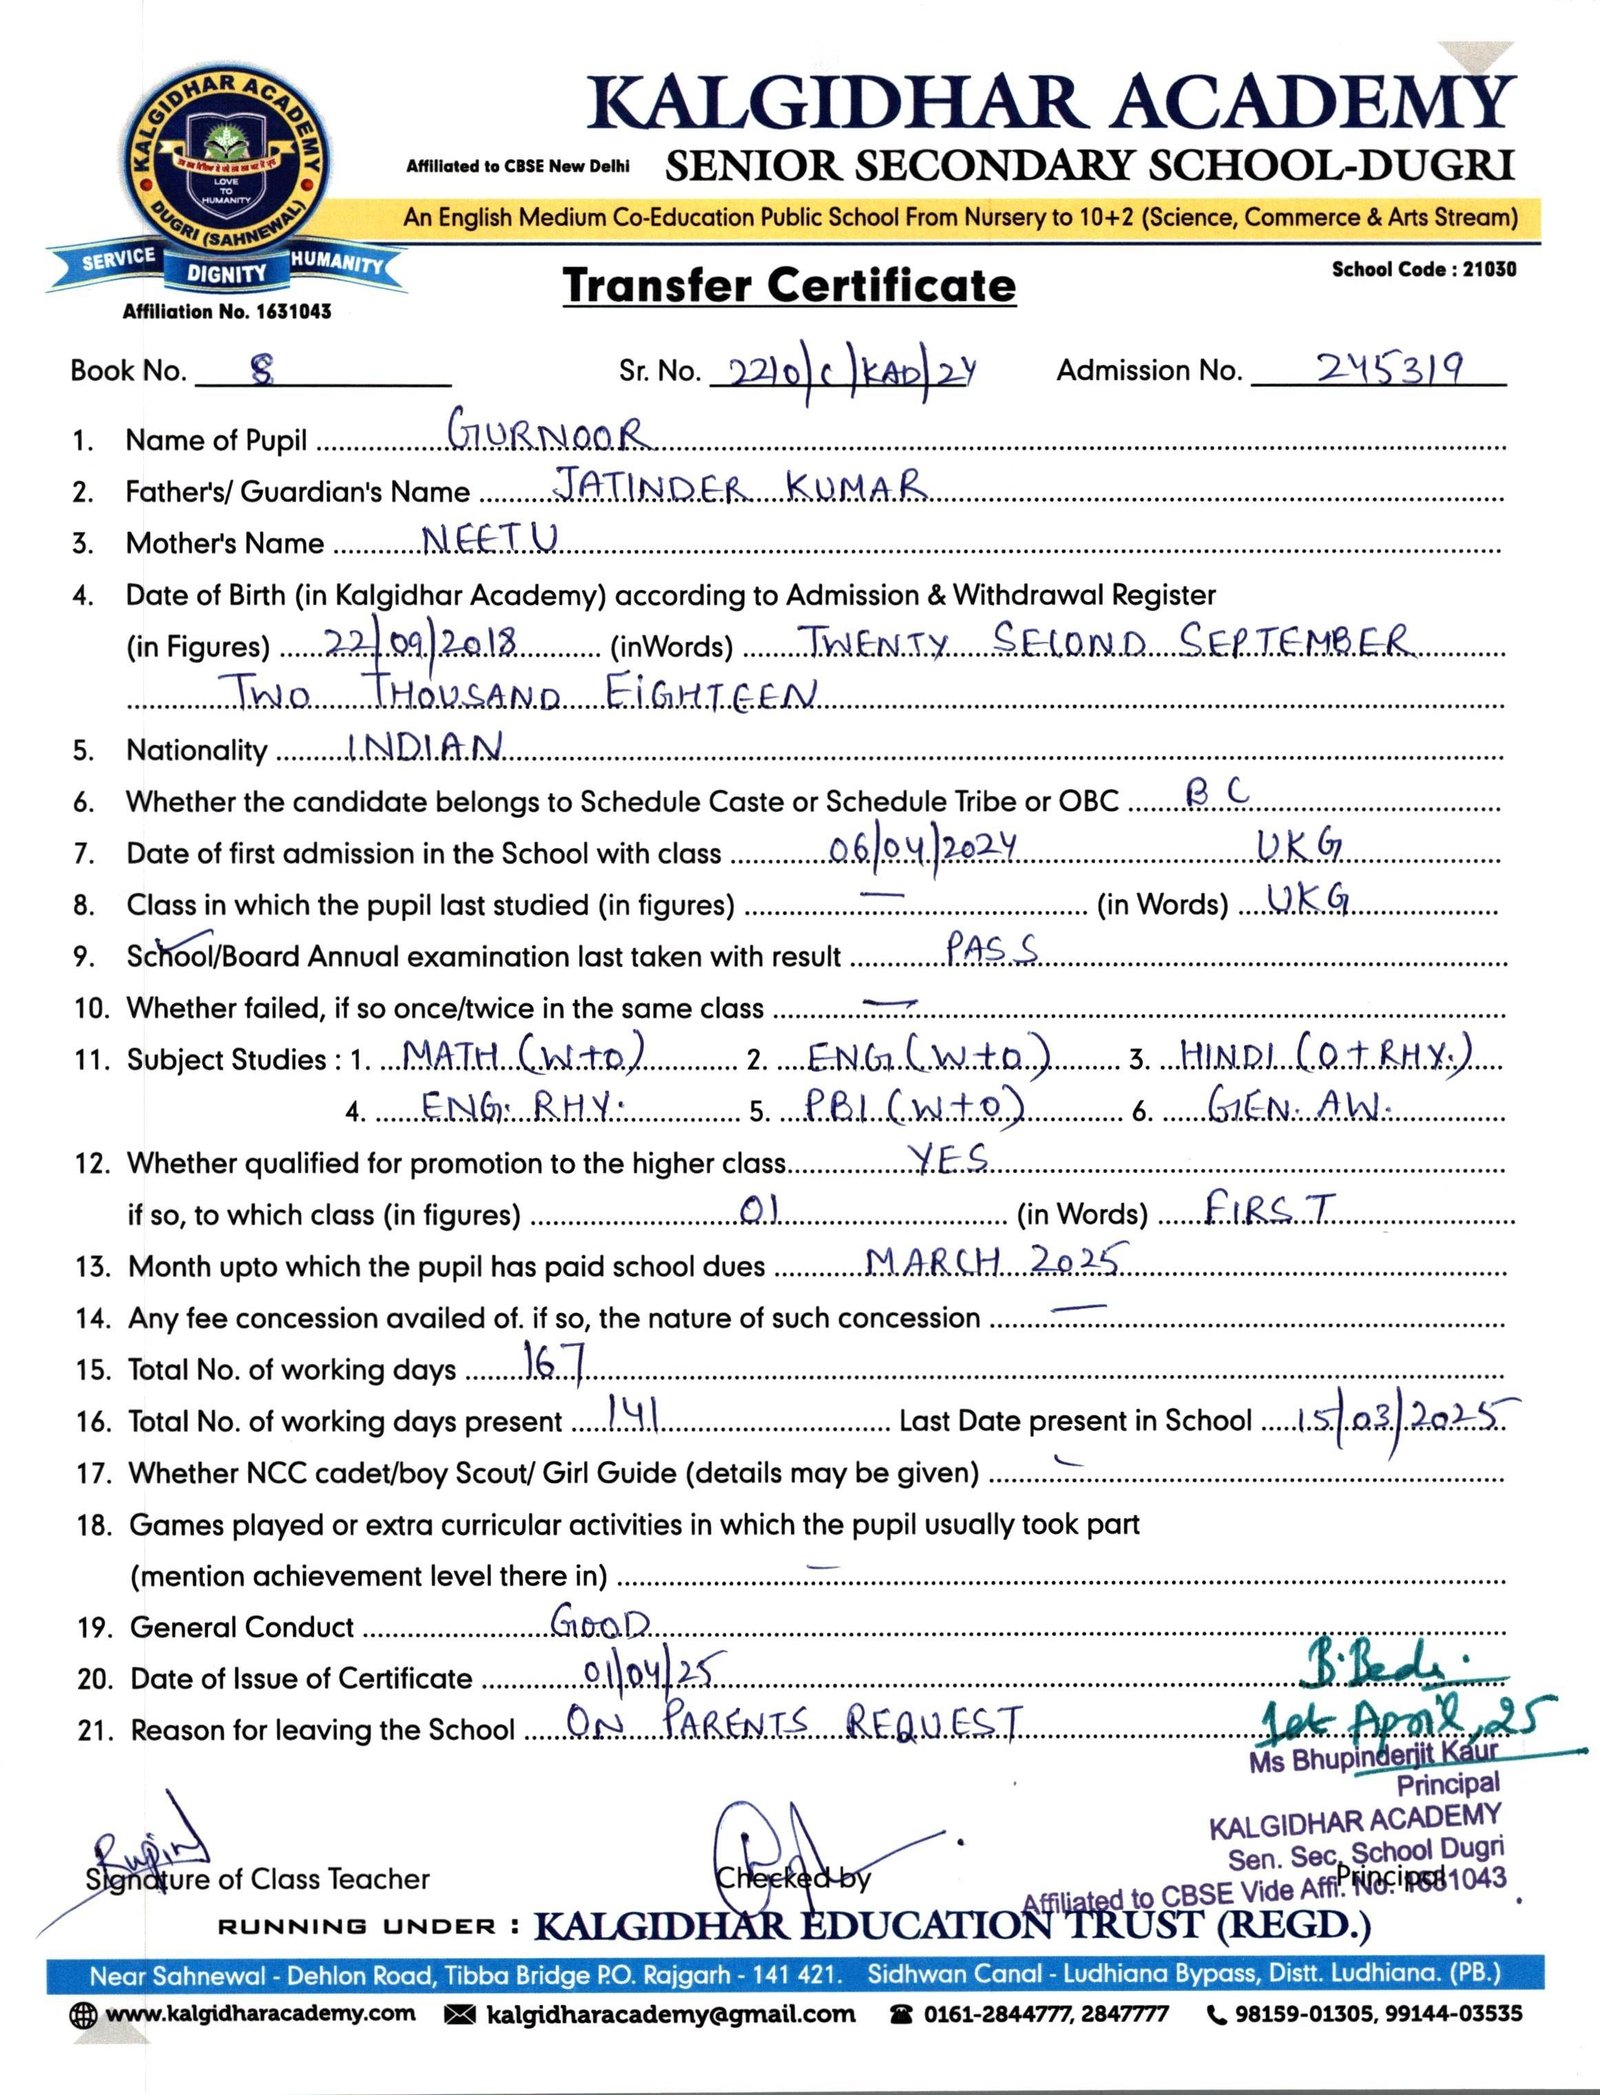 KALGIDHAR ACADEMY
DUGRI (SAHNEWAL)
LOVE
TO
HUMANITY
SERVICE DIGNITY HUMANITY
Affiliation No. 1631043
KALGIDHAR ACADEMY
Affiliated to CBSE New Delhi SENIOR SECONDARY SCHOOL-DUGRI
An English Medium Co-Education Public School From Nursery to 10+2 (Science, Commerce & Arts Stream)
Transfer Certificate
School Code : 21030
Book No. 8 Sr. No. 2210/C/KAD/24 Admission No. 245319
1. Name of Pupil GURNOOR
2. Father's/ Guardian's Name JATINDER KUMAR
3. Mother's Name NEETU
4. Date of Birth (in Kalgidhar Academy) according to Admission & Withdrawal Register
(in Figures) 22/09/2018 (inWords) TWENTY SECOND SEPTEMBER
TWO THOUSAND EIGHTEEN
5. Nationality INDIAN
6. Whether the candidate belongs to Schedule Caste or Schedule Tribe or OBC BC
7. Date of first admission in the School with class 06/04/2024 UKG
8. Class in which the pupil last studied (in figures) — (in Words) UKG
9. School/Board Annual examination last taken with result PASS
10. Whether failed, if so once/twice in the same class —
11. Subject Studies : 1. MATH (W+O) 2. ENG (W+O) 3. HINDI (O+RHY.)
4. ENG. RHY. 5. PBI (W+O) 6. GEN. AW.
12. Whether qualified for promotion to the higher class YES
if so, to which class (in figures) 01 (in Words) FIRST
13. Month upto which the pupil has paid school dues MARCH 2025
14. Any fee concession availed of. if so, the nature of such concession —
15. Total No. of working days 167
16. Total No. of working days present 141 Last Date present in School 15/03/2025
17. Whether NCC cadet/boy Scout/ Girl Guide (details may be given) —
18. Games played or extra curricular activities in which the pupil usually took part
(mention achievement level there in) —
19. General Conduct GOOD
20. Date of Issue of Certificate 01/04/25 B. Bedi.
21. Reason for leaving the School ON PARENTS REQUEST 1st April, 25
Ms Bhupinderjit Kaur
Principal
KALGIDHAR ACADEMY
Sen. Sec. School Dugri
Affiliated to CBSE Vide Affi. No. 1631043
Rupin
Signature of Class Teacher Checked by Principal
RUNNING UNDER : KALGIDHAR EDUCATION TRUST (REGD.)
Near Sahnewal - Dehlon Road, Tibba Bridge P.O. Rajgarh - 141 421. Sidhwan Canal - Ludhiana Bypass, Distt. Ludhiana. (PB.)
www.kalgidharacademy.com kalgidharacademy@gmail.com 0161-2844777, 2847777 98159-01305, 99144-03535